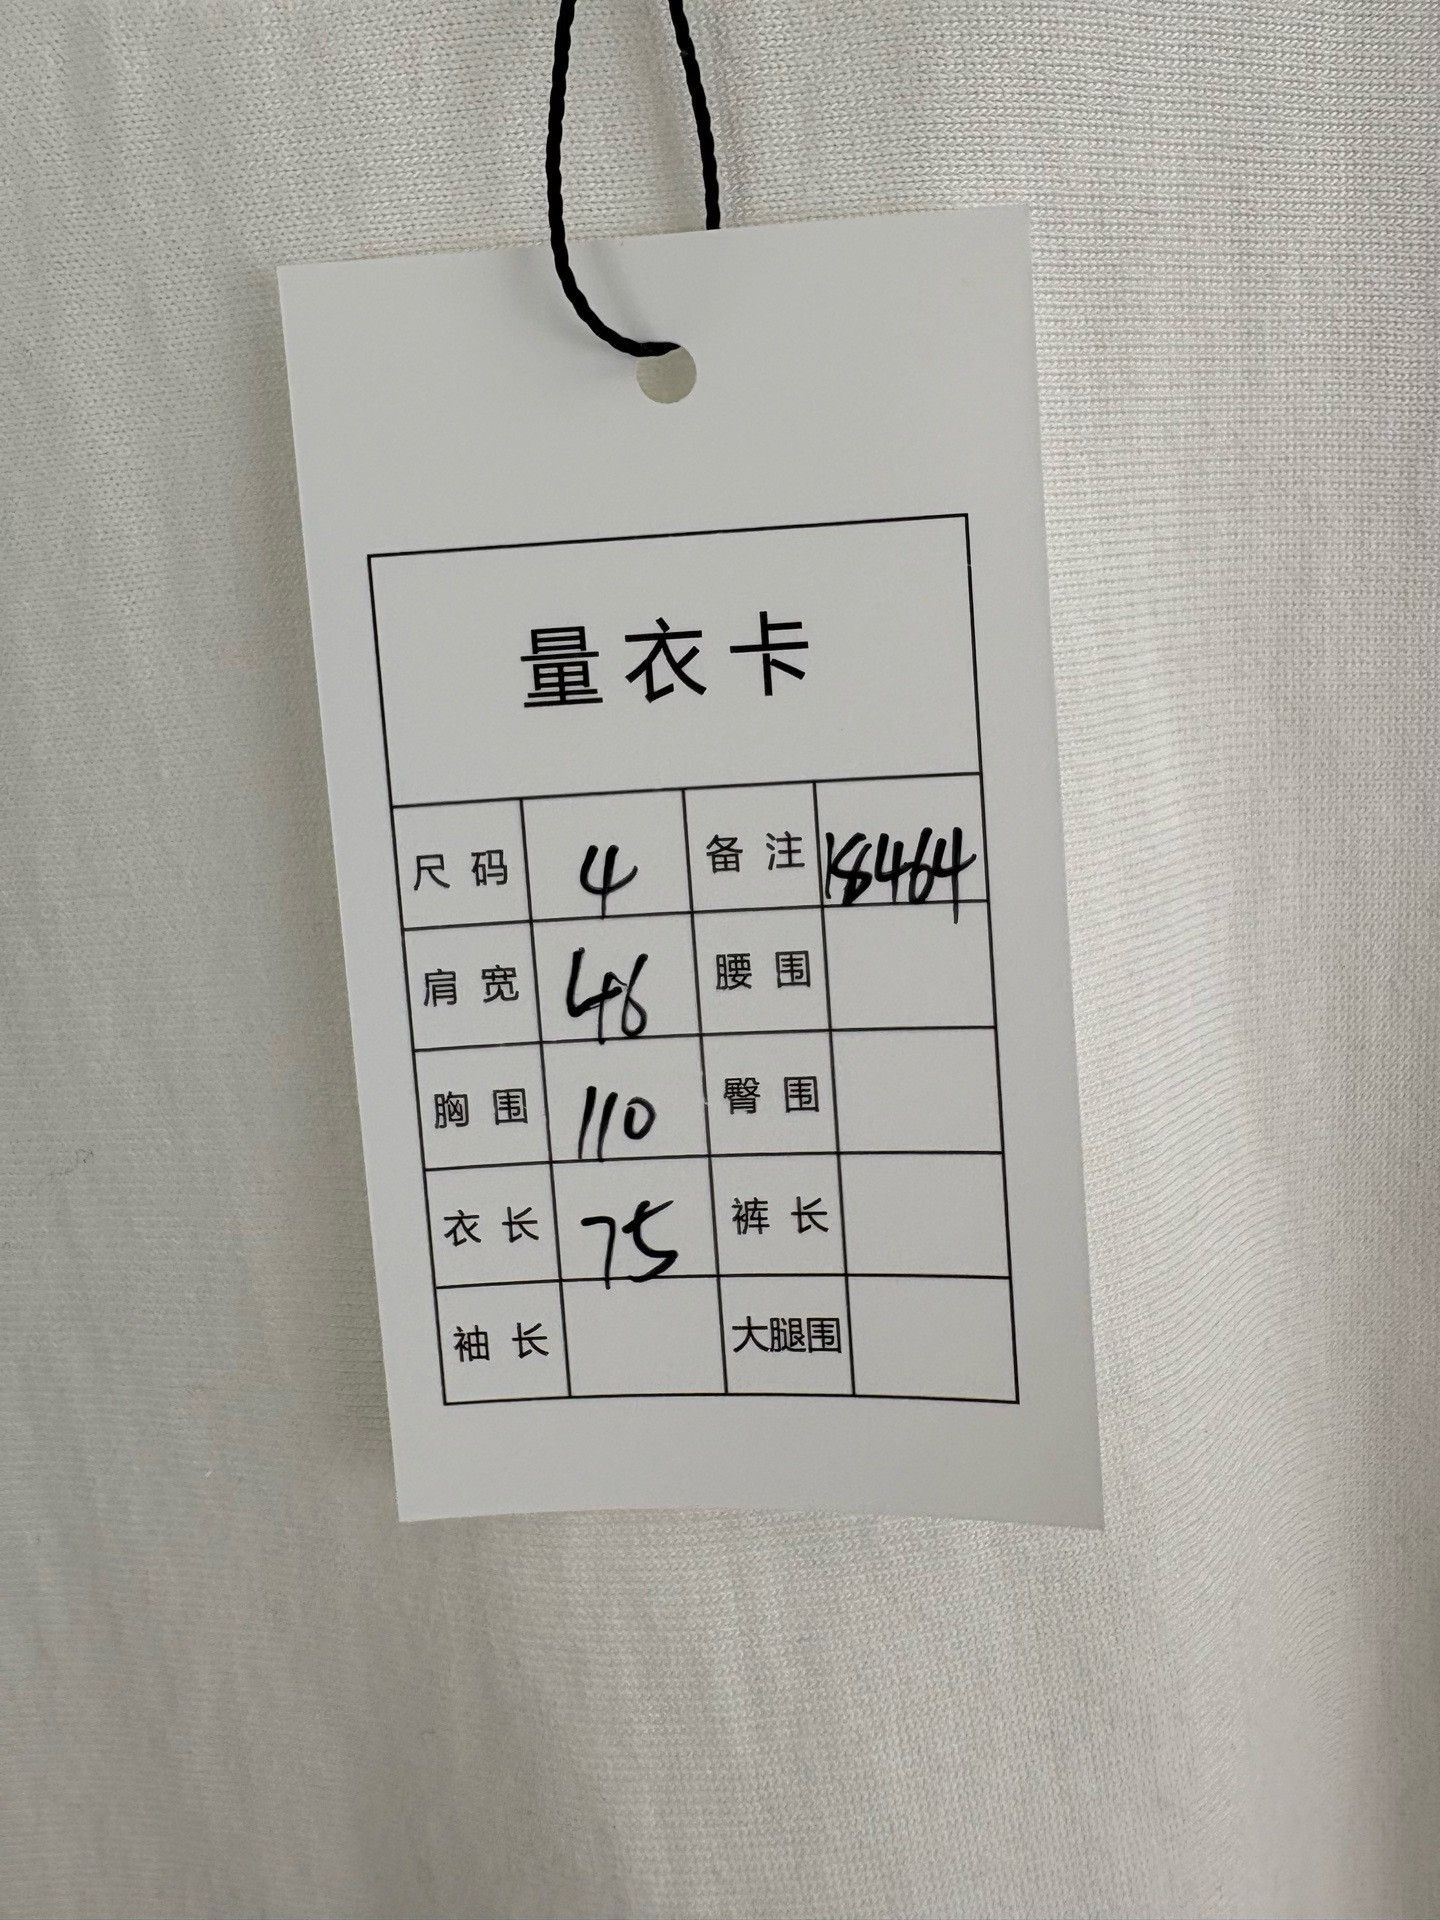 量衣卡
尺码 4 备注 18464
肩宽 46 腰围
胸围 110 臀围
衣长 75 裤长
袖长 大腿围